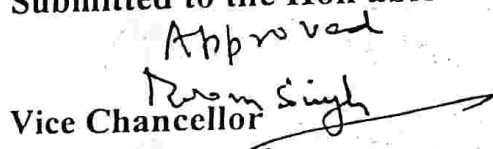 Submitted to the Hon'able
Approved
Singh
Vice Chancellor